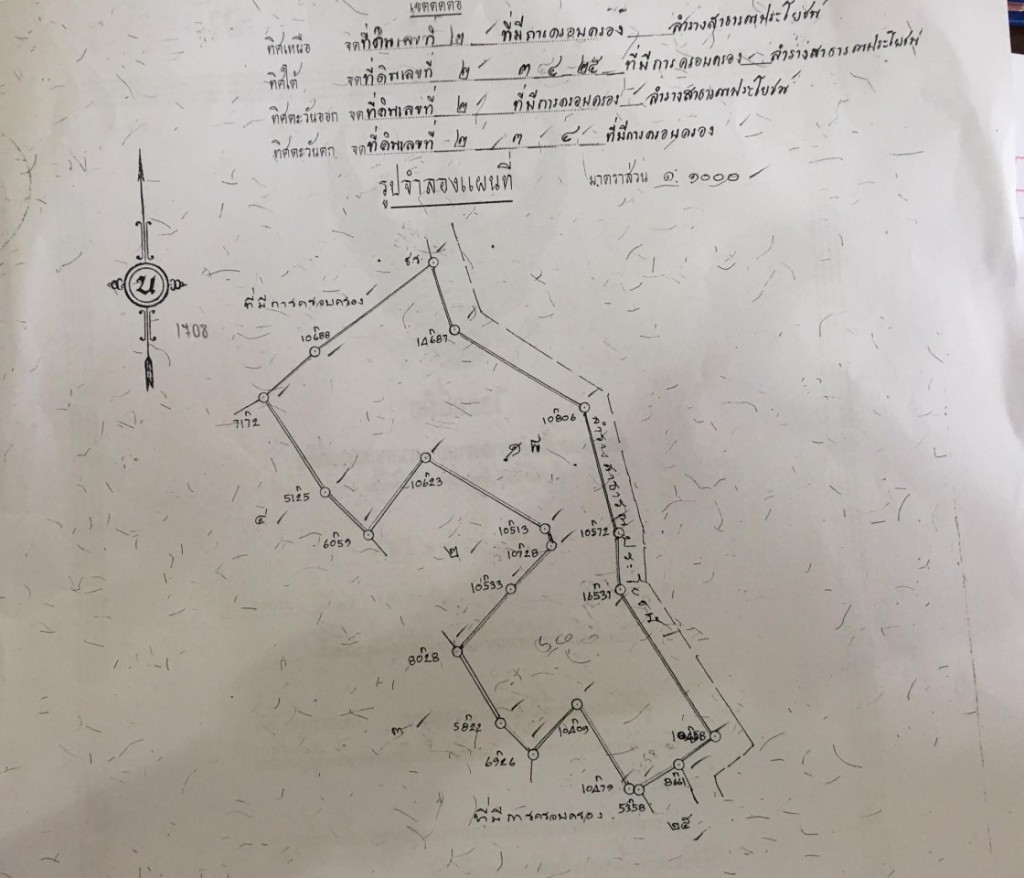 เขตติดต่อ
ทิศเหนือ จดที่ดินเลขที่ ๒ ที่มีการครอบครอง ลำรางสาธารณประโยชน์
ทิศใต้ จดที่ดินเลขที่ ๒ ๓ ๔ ๒๕ ที่มีการครอบครอง ลำรางสาธารณประโยชน์
ทิศตะวันออก จดที่ดินเลขที่ ๒ ที่มีการครอบครอง ลำรางสาธารณประโยชน์
ทิศตะวันตก จดที่ดินเลขที่ ๒ ๓ ๔ ที่มีการครอบครอง
รูปจำลองแผนที่ มาตราส่วน ๑:๑๐๐๐
น
1708
ที่มีการครอบครอง
14687
7172
10806
ลำรางสาธารณประโยชน์
10623
5125
๔
6059
๒
10513
10728
10572
10533
16531
8028
๓
5822
6926
10409
10458
10479
5358
8461
ที่มีการครอบครอง
๒๕